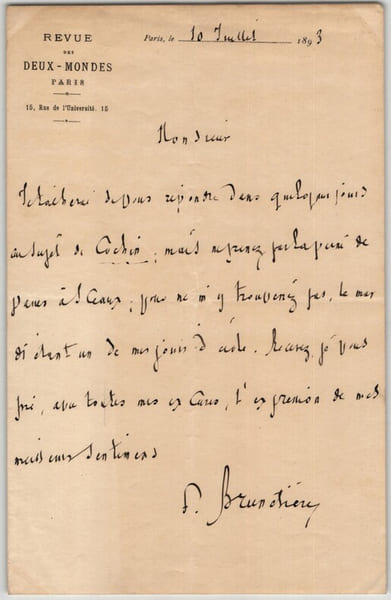 REVUE
DES
DEUX-MONDES
PARIS
15, Rue de l'Université. 15
Paris, le 10 Juillet 1893
Monsieur
Je tâcherai de vous répondre dans quelques jours
au sujet de Cochin ; mais ne prenez pas la peine de
passer à Sceaux ; vous ne m'y trouveriez pas, le mar
di étant un de mes jours d'école. Recevez, je vous
prie, avec toutes mes excuses, l'expression de mes
meilleurs sentiments
F. Brunetière